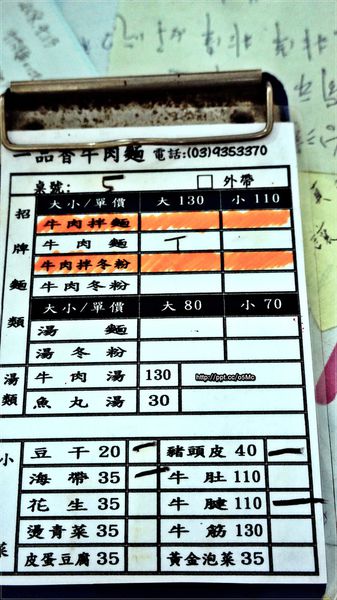 一品香牛肉麵 電話:(03)9353370
桌號: 5 外帶
招牌麵類
大小/單價 大 130 小 110
牛肉拌麵
牛肉麵
牛肉拌冬粉
牛肉拌冬粉
大小/單價 大 80 小 70
湯麵
湯冬粉
湯類
牛肉湯 130
魚丸湯 30
http://ppt.cc/o5Mc
小菜
豆干20 豬頭皮40
海帶35 牛肚110
花生35 牛腱110
燙青菜35 牛筋130
皮蛋豆腐35 黃金泡菜35